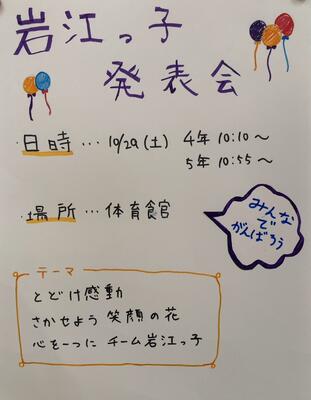 岩江っ子
発表会
・日時…10/29(土) 4年 10:10〜
5年 10:55〜
・場所…体育館
みんな
で
がんばろう
テーマ
とどけ感動
さかせよう 笑顔の花
心を一つに チーム岩江っ子